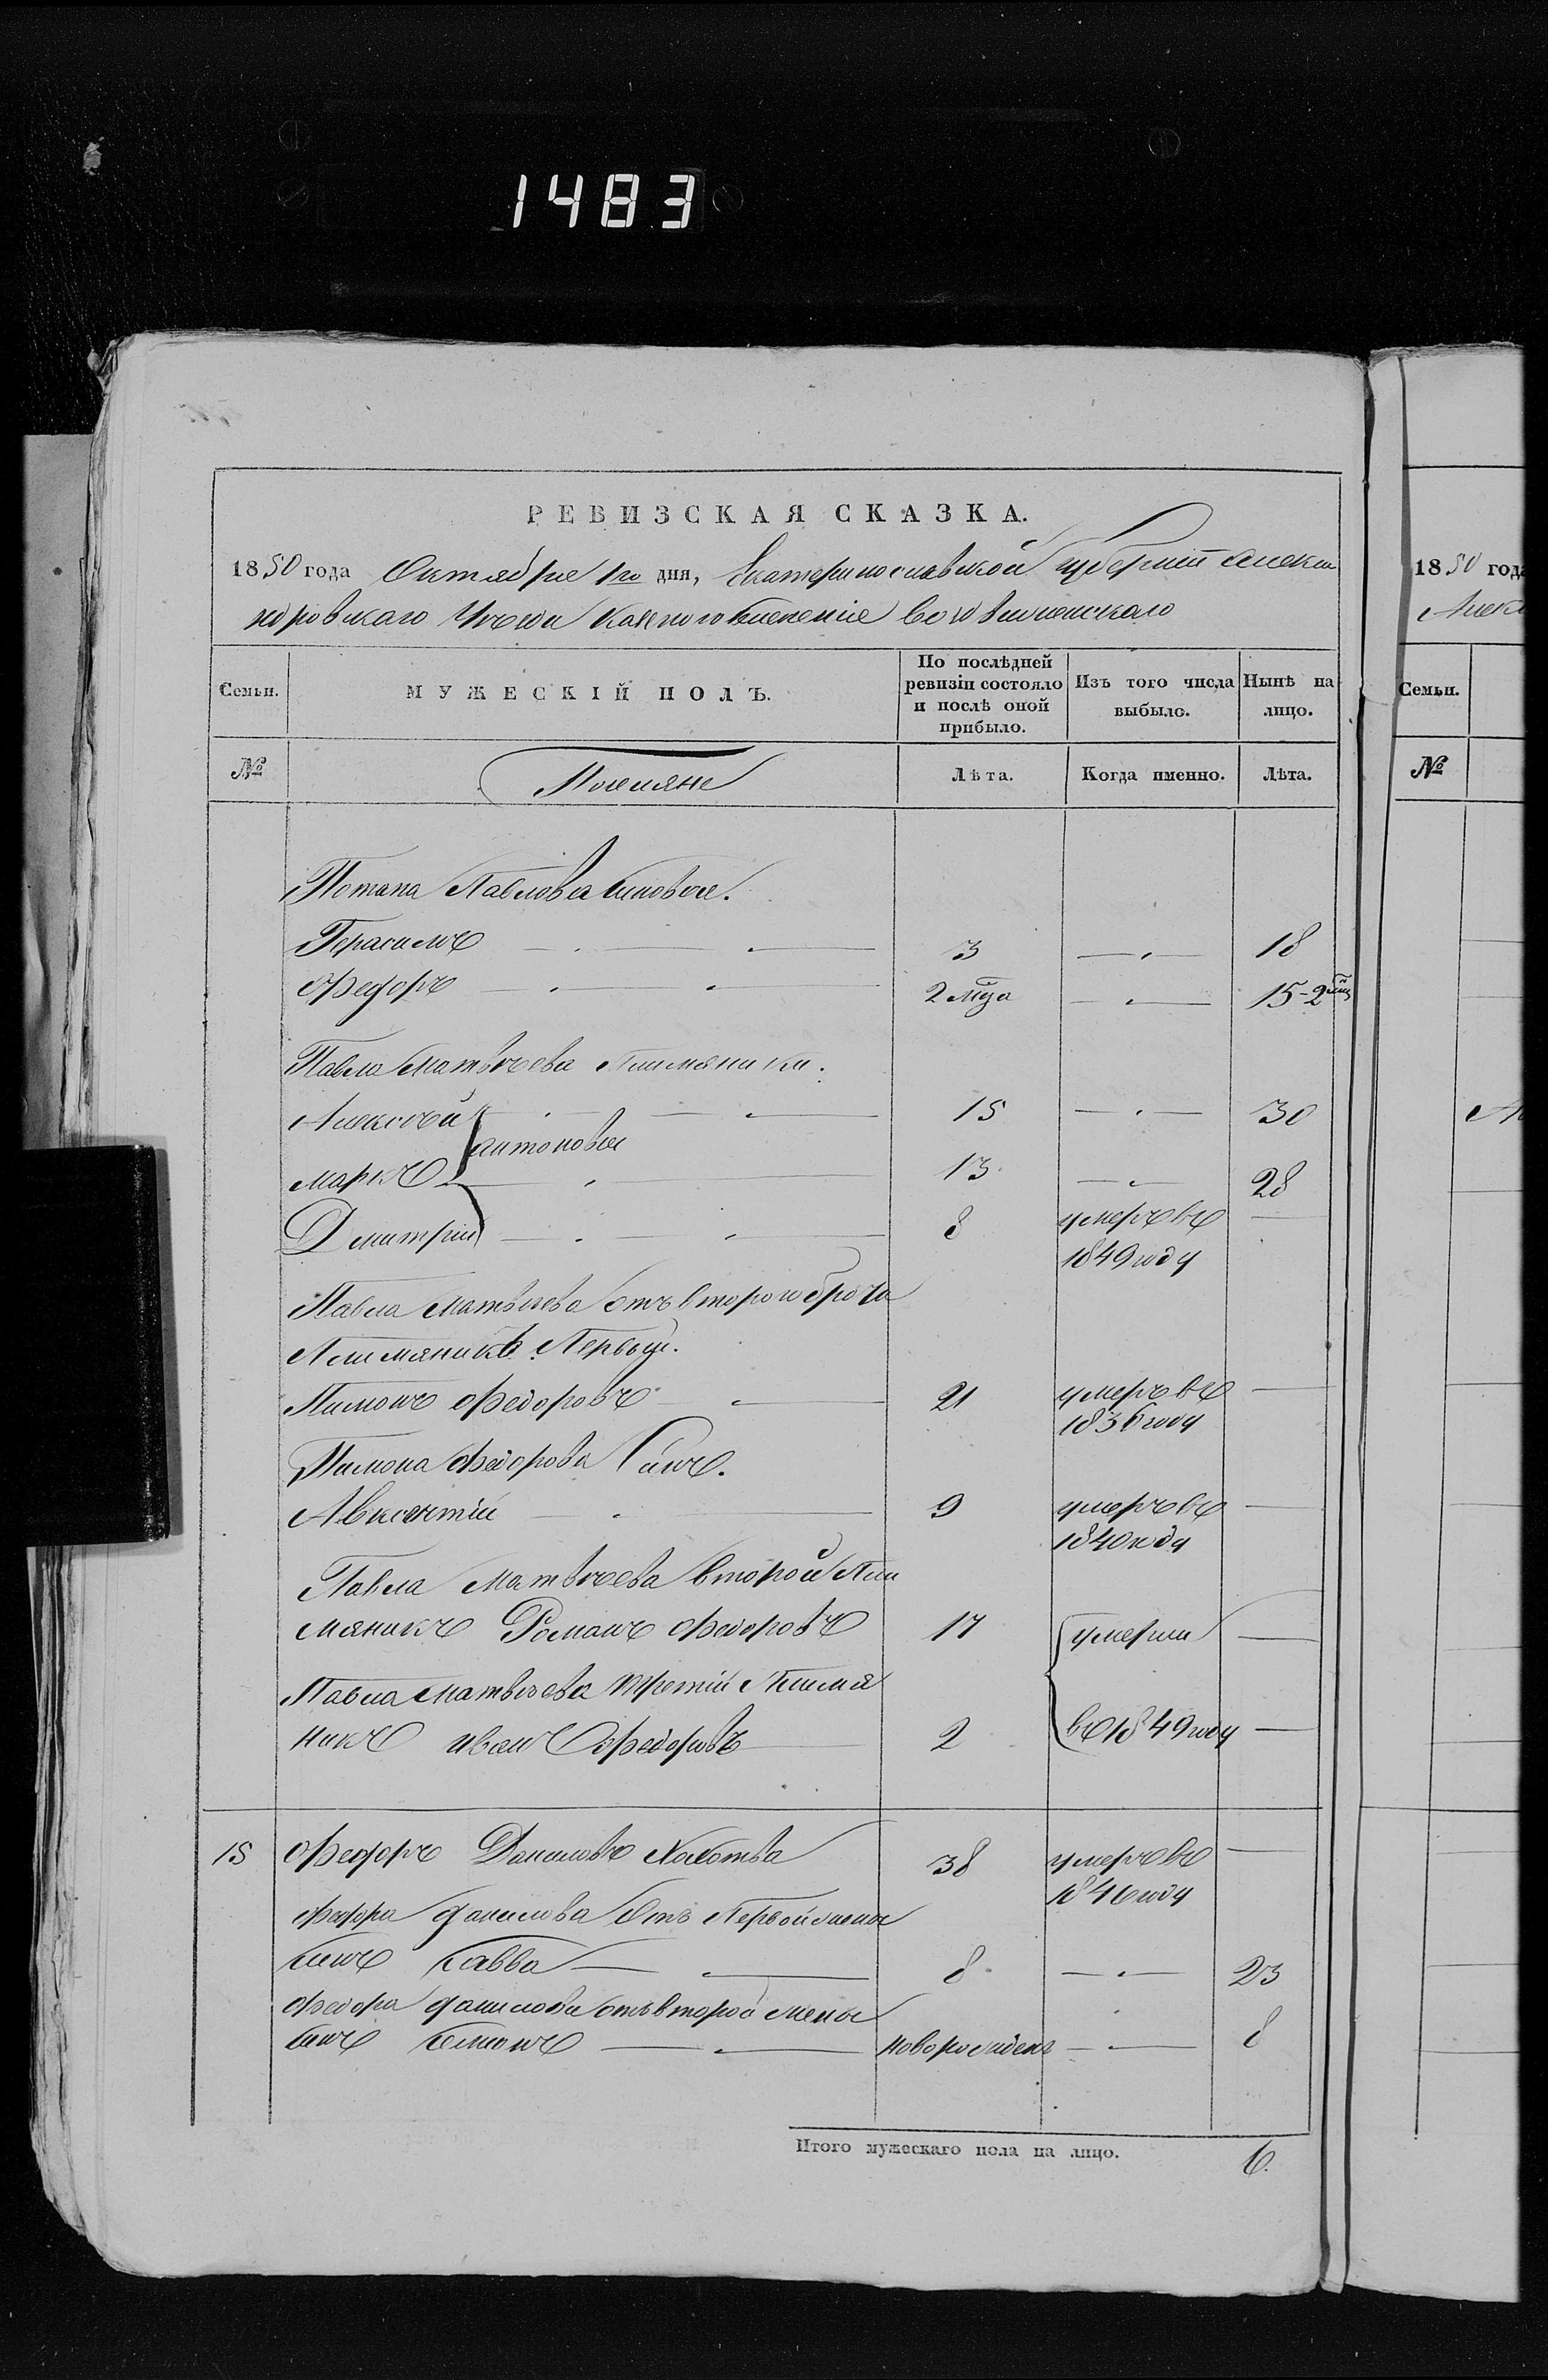 1483
РЕВИЗСКАЯ СКАЗКА.
1850 года Октября 1го дня, Екатеринославской губернии Алекса
ндровскаго Уезда Казеннаго Селенiе
Семьи.
МУЖЕСКІЙ ПОЛЪ.
По послѣдней ревизіи состояло и послѣ оной прибыло.
Изъ того числа выбыло.
Нынѣ на лицо.
№
Поселяне
Лѣта.
Когда именно.
Лѣта.
Потапа Павлова Сыновья.
Герасимъ 3 18
Федоръ 2 мца 15-2 мц
Павла Матвѣева Племяники.
Алексѣй 15 30
Антоновы
Маркъ 13 28
Дмитрий 8 умеръ въ
1849 году
Павла Матвѣева отъ второго брата
Племяникъ Первый.
Пимонъ Федоровъ 21 умеръ въ
1836 году
Пимона Федорова Сынъ.
Авксентій 9 умеръ въ
1840 году
Павла Матвѣева второй Пле
мяникъ Романъ Федоровъ 17 умерли
Павла Матвѣева третій Племя
никъ Иванъ Федоровъ 2 въ 1849 году
15 Федоръ Даниловъ 38 умеръ въ
1846 году
Федора Данилова отъ Первой жены
Сынъ Савва 8 23
Федора Данилова отъ второй жены
Сынъ Семионъ новорожденъ 8
Итого мужескаго пола на лицо. 6.
1850 года
Алекс
Семьи.
№